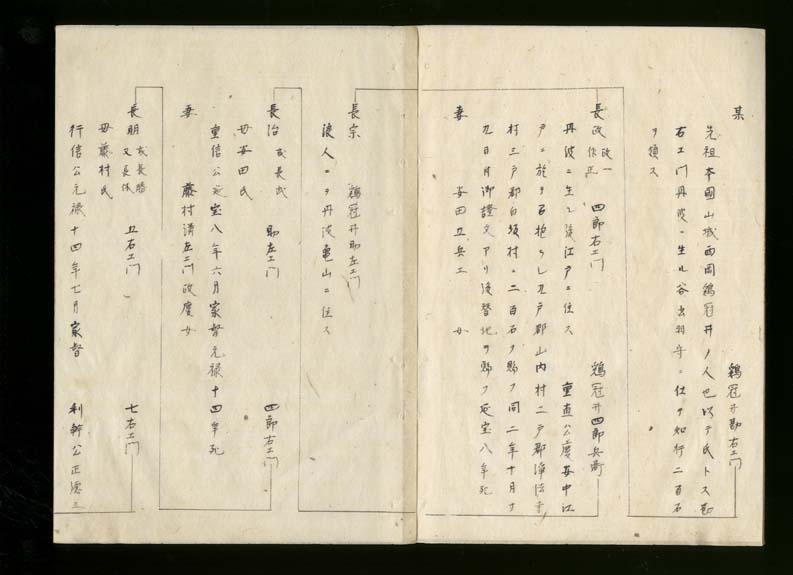 某　　鶏冠井勘右エ門
先祖本國山城西岡鶏冠井ノ人也以テ氏トス勘
右エ門丹波ニ生ル谷出羽守ニ仕テ知行二百石
ヲ領ス
長政　政一　作正　四郎右エ門　鶏冠井四郎兵衛
丹波ニ生レ後江戸ニ住ス　重直公慶安中江
戸ニ於テ召抱ラレ九戸郡山内村二戸郡浄法寺
村三戸郡白坂村ニ二百石ヲ賜フ同二年十月十
九日御證文アリ後替地ヲ賜フ延宝八年死
妻　安田兵エ女
長宗　鶏冠井助左エ門
浪人ニテ丹波亀山ニ住ス
長治　長氏　助左エ門　四郎右エ門
母安田氏
重信公延宝八年六月家督元禄十四年死
妻　藤村清左エ門政慶女
長明　長勝　又長　右エ門　七右エ門
母藤村氏
行信公元禄十四年七月家督　利幹公正徳三